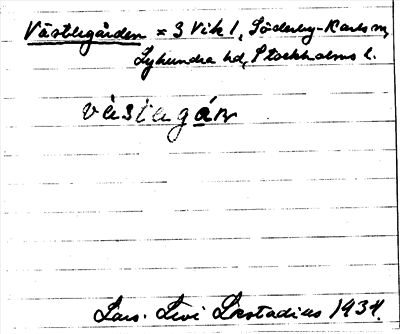 Västergården = 3 Vik 1, Söderby-Karls sn,
Lyhundra hd, Stockholms l.
vàstegá̱n
Lars-Levi Læstadius 1934.